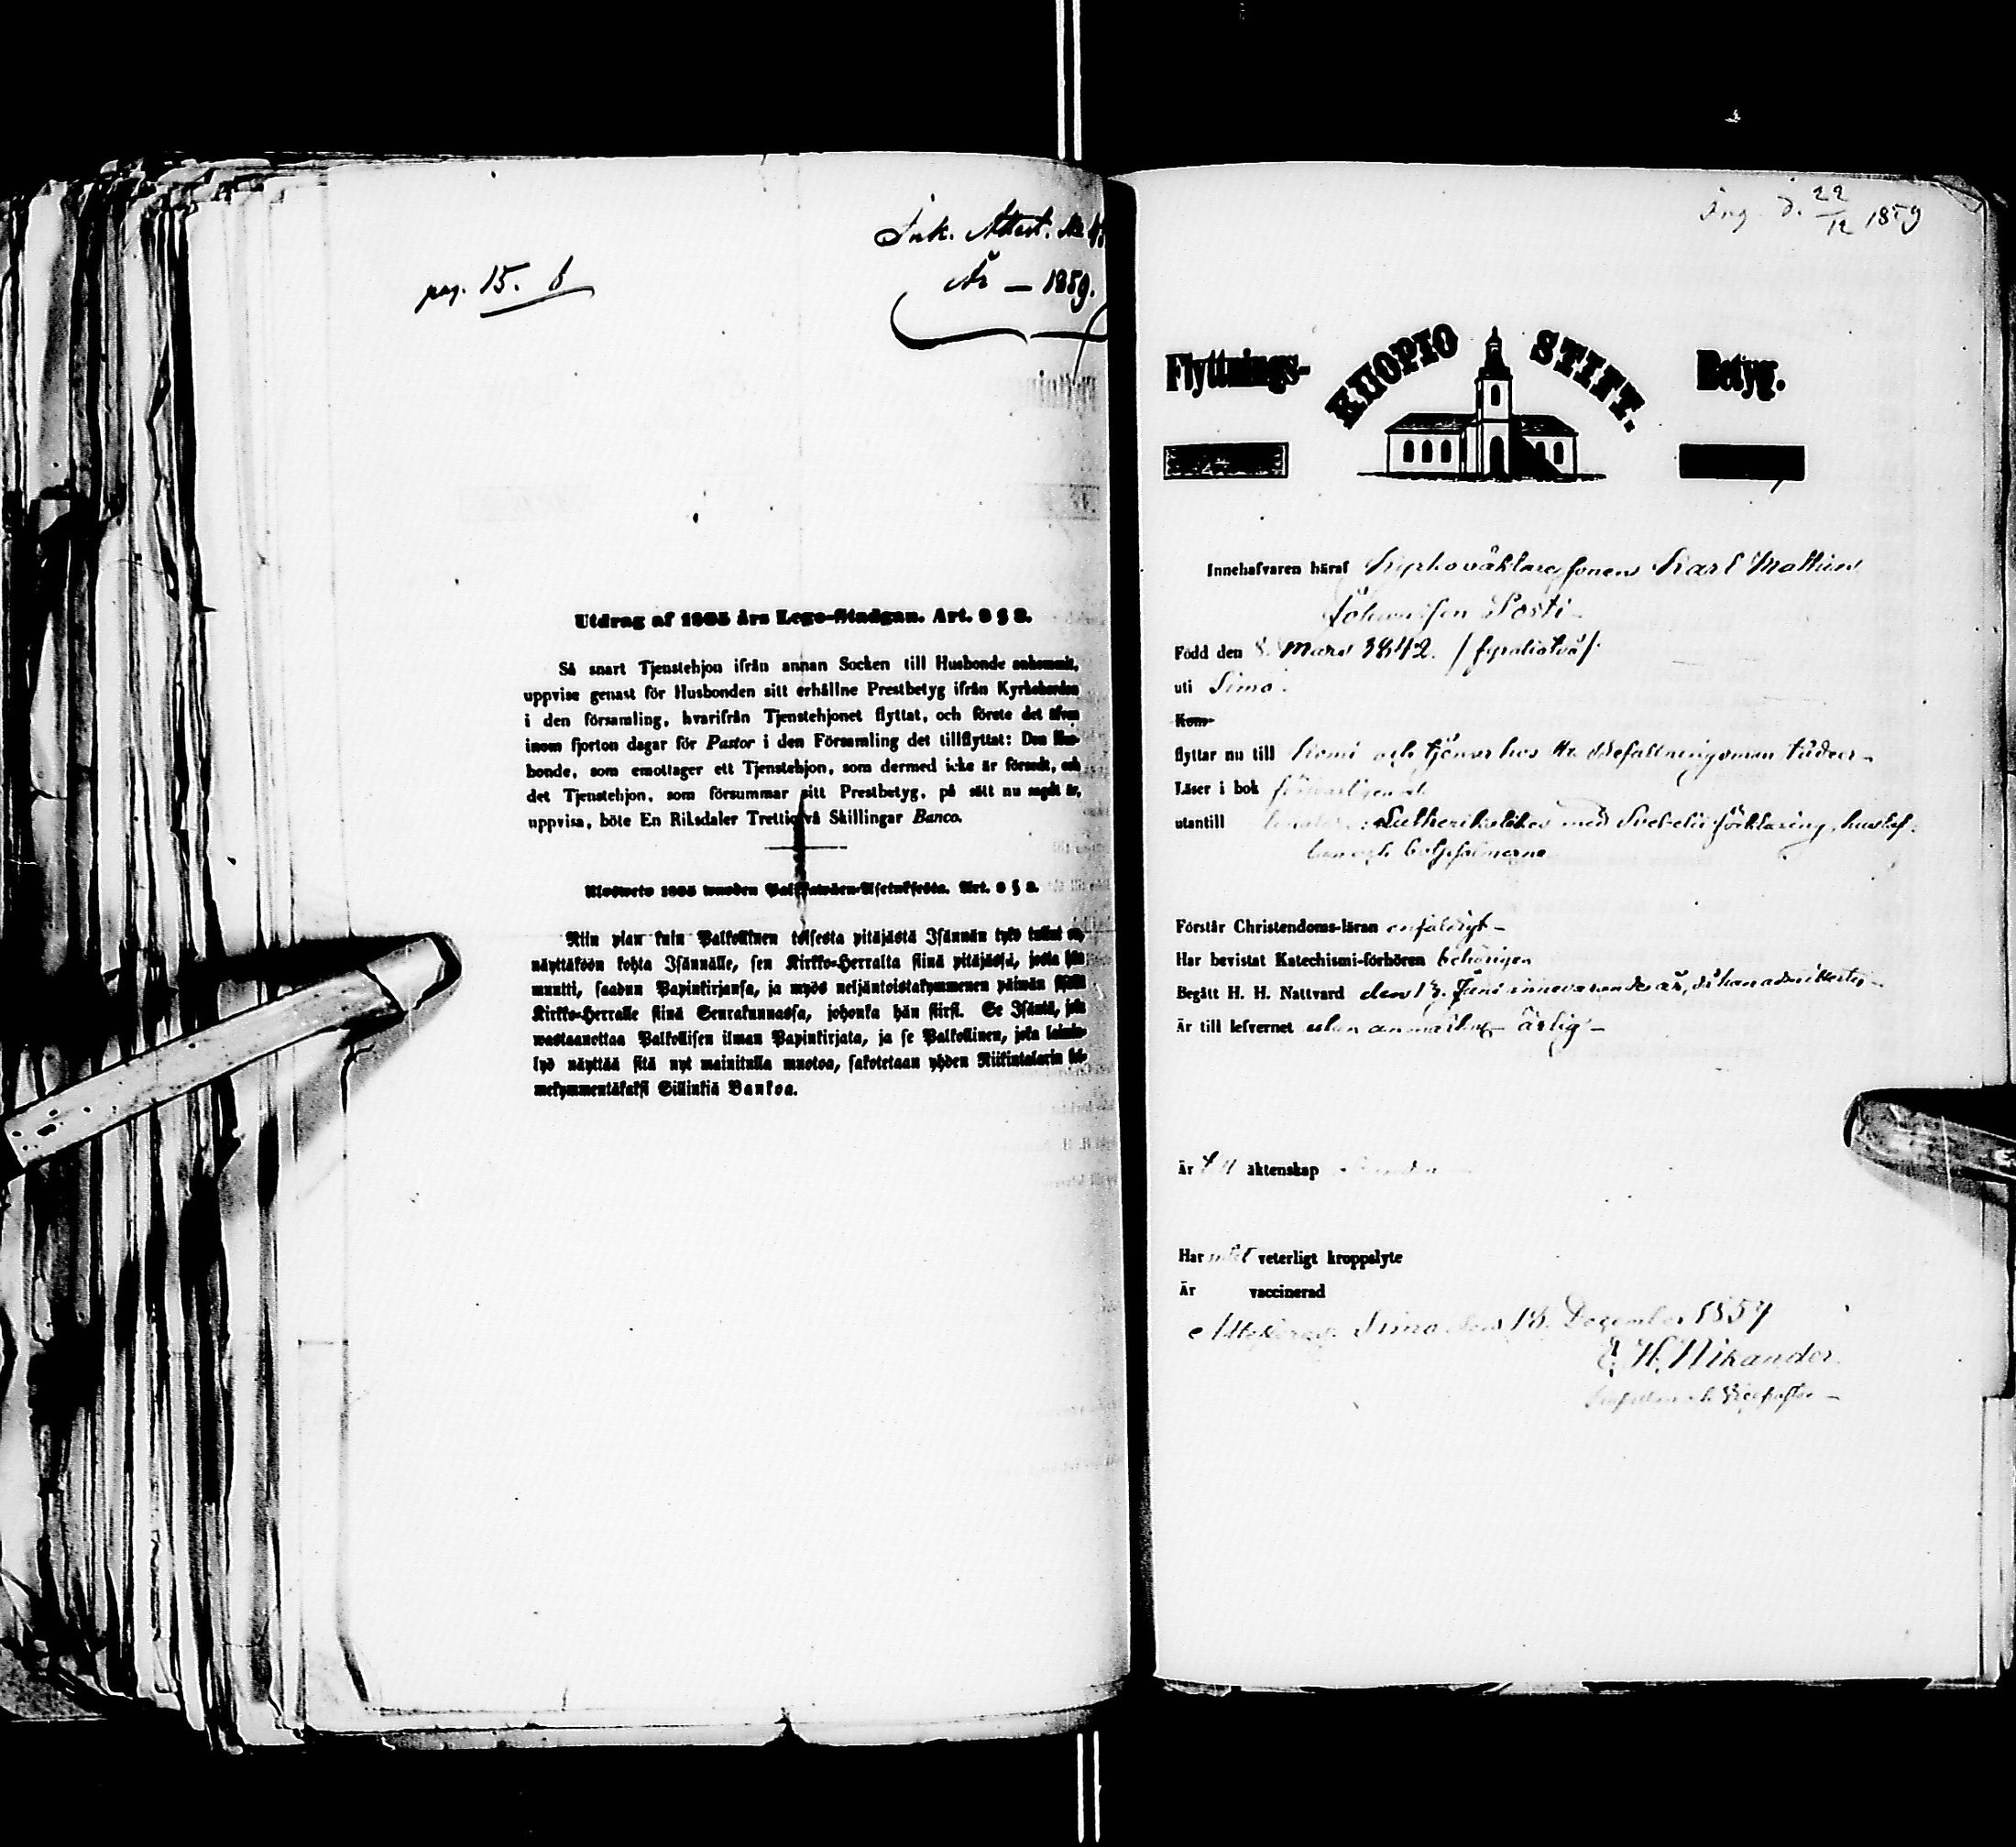 Ink. Attest. No
År — 1859.
pag. 15. b
Utdrag af 1805 års Lego-Stadgan. Art. 8 § 2.
Så snart Tjenstehjon ifrån annan Socken till Husbonde ankommit,
uppvise genast för Husbonden sitt erhållne Prestbetyg ifrån Kyrkoherden
i den församling, hvarifrån Tjenstehjonet flyttat, och förete det äfven
inom fjorton dagar för Pastor i den Församling det tillflyttat: Den Hus-
bonde, som emottager ett Tjenstehjon, som dermed icke är försedt, och
det Tjenstehjon, som försummar sitt Prestbetyg, på sätt nu sagdt är,
uppvisa, böte En Riksdaler Trettiotvå Skillingar Banco.
Ulosweto 1805 wuoden Palkkawäen-Asetuksesta. Art. 8 § 2.
Niin pian kuin Palkollinen toisesta pitäjästä Isännän tykö tullut on,
näyttäköön kohta Isännälle, sen Kirkko-Herralta siinä pitäjässä, josta hän
muutti, saadun Papinkirjansa, ja myös neljäntoistakymmenen päiwän sisällä
Kirkko-Herralle siinä Seurakunnassa, johonka hän siirsi. Se Isäntä, joka
wastaanottaa Palkollisen ilman Papinkirjata, ja se Palkollinen, joka laimin-
lyö näyttää sitä nyt mainitulla muotoa, sakotetaan yhden Riikintalarin kol-
mekymmentäkaksi Sillinkiä Bankoa.
Ing. d. 22/12 1859
Flyttnings- KUOPIO STIFT. Betyg.
Innehafvaren häraf Kyrkoväktaresonen Karl Matthias
Johansson Posti
Född den 8 Mars 1842. /fyratiotvå/
uti Simo.
Kom-
flyttar nu till Kemi och tjenar hos Hr Befallningsman
Läser i bok försvarligen
utantill Lutheri Cateches med Svebelii förklaring, hustaf.
och botpsalmerne
Förstår Christendoms-läran enfaldigt –
Har bevistat Katechismi-förhören behörigen
Begått H. H. Nattvard den 13 Juni innevarande år, då han admitterts –
Är till lefvernet utan anmärkn. ärlig –
Är till äktenskap
Har intet veterligt kroppslyte
Är vaccinerad
Attesterar. Simo den 18. December 1859
E. H. Nikander.